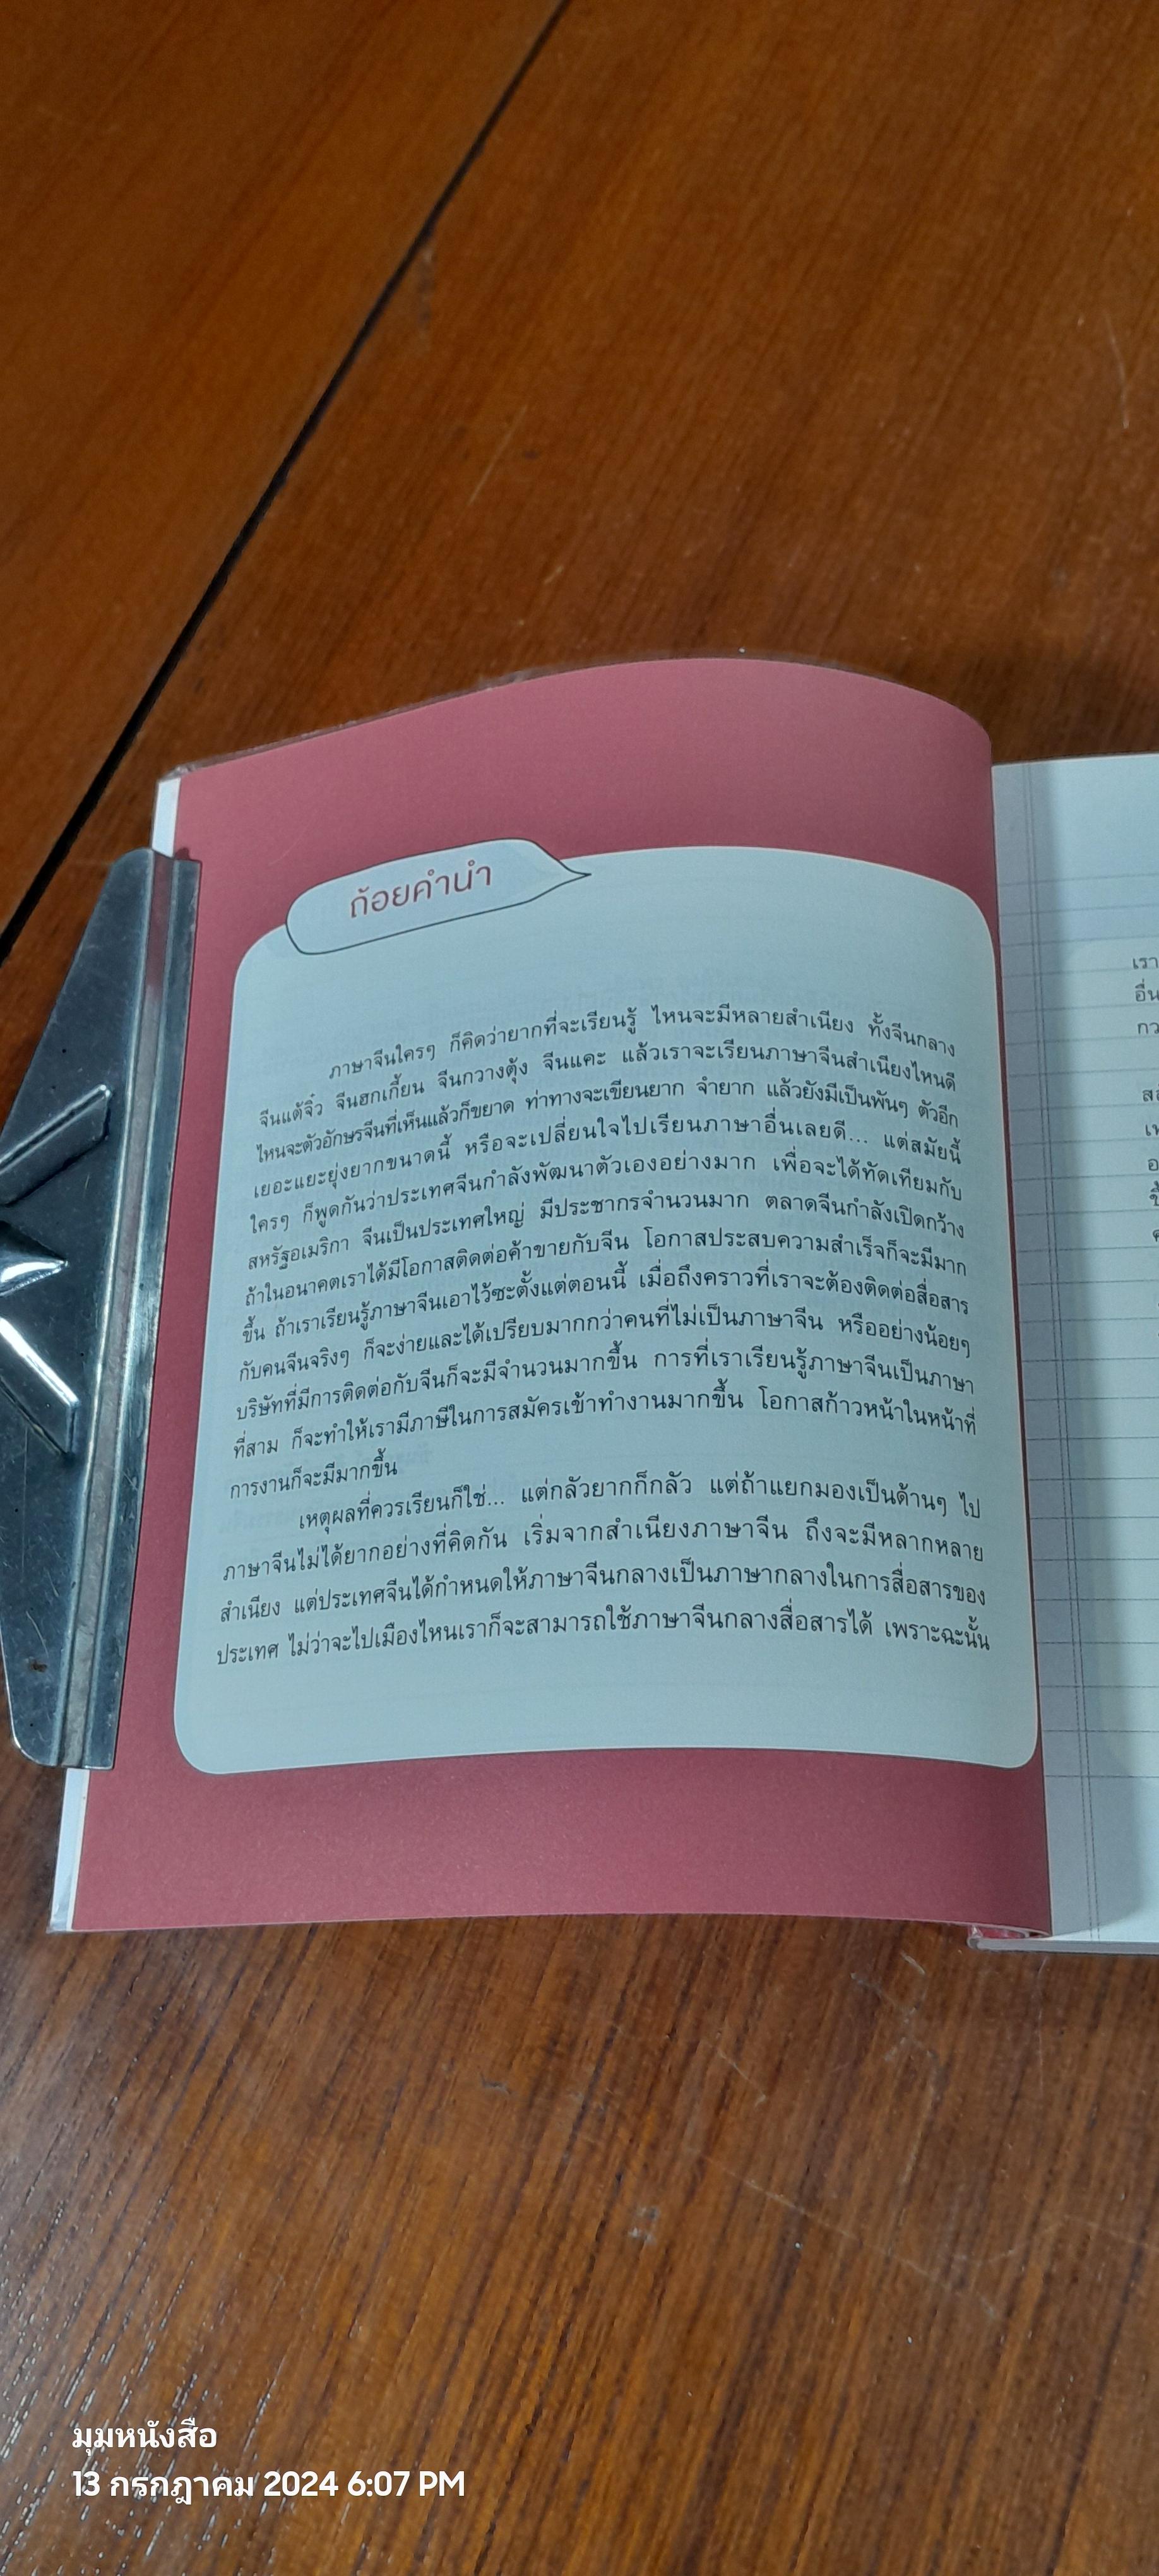 ถ้อยคำนำ
ภาษาจีนใครๆ ก็คิดว่ายากที่จะเรียนรู้ ไหนจะมีหลายสำเนียง ทั้งจีนกลาง
จีนแต้จิ๋ว จีนฮกเกี้ยน จีนกวางตุ้ง จีนแคะ แล้วเราจะเรียนภาษาจีนสำเนียงไหนดี
ไหนจะตัวอักษรจีนที่เห็นแล้วก็ขยาด ท่าทางจะเขียนยาก จำยาก แล้วยังมีเป็นพันๆ ตัวอีก
เยอะแยะยุ่งยากขนาดนี้ หรือจะเปลี่ยนใจไปเรียนภาษาอื่นเลยดี... แต่สมัยนี้
ใครๆ ก็พูดกันว่าประเทศจีนกำลังพัฒนาตัวเองอย่างมาก เพื่อจะได้ทัดเทียมกับ
สหรัฐอเมริกา จีนเป็นประเทศใหญ่ มีประชากรจำนวนมาก ตลาดจีนกำลังเปิดกว้าง
ถ้าในอนาคตเราได้มีโอกาสติดต่อค้าขายกับจีน โอกาสประสบความสำเร็จก็จะมีมาก
ขึ้น ถ้าเราเรียนรู้ภาษาจีนเอาไว้ซะตั้งแต่ตอนนี้ เมื่อถึงคราวที่เราจะต้องติดต่อสื่อสาร
กับคนจีนจริงๆ ก็จะง่ายและได้เปรียบมากกว่าคนที่ไม่เป็นภาษาจีน หรืออย่างน้อยๆ
บริษัทที่มีการติดต่อกับจีนก็จะมีจำนวนมากขึ้น การที่เราเรียนรู้ภาษาจีนเป็นภาษา
ที่สาม ก็จะทำให้เรามีภาษีในการสมัครเข้าทำงานมากขึ้น โอกาสก้าวหน้าในหน้าที่
การงานก็จะมีมากขึ้น
เหตุผลที่ควรเรียนก็ใช่... แต่กลัวยากก็กลัว แต่ถ้าแยกมองเป็นด้านๆ ไป
ภาษาจีนไม่ได้ยากอย่างที่คิดกัน เริ่มจากสำเนียงภาษาจีน ถึงจะมีหลากหลาย
สำเนียง แต่ประเทศจีนได้กำหนดให้ภาษาจีนกลางเป็นภาษากลางในการสื่อสารของ
ประเทศ ไม่ว่าจะไปเมืองไหนเราก็จะสามารถใช้ภาษาจีนกลางสื่อสารได้ เพราะฉะนั้น
เรา
อื่น
มุมหนังสือ
13 กรกฎาคม 2024 6:07 PM